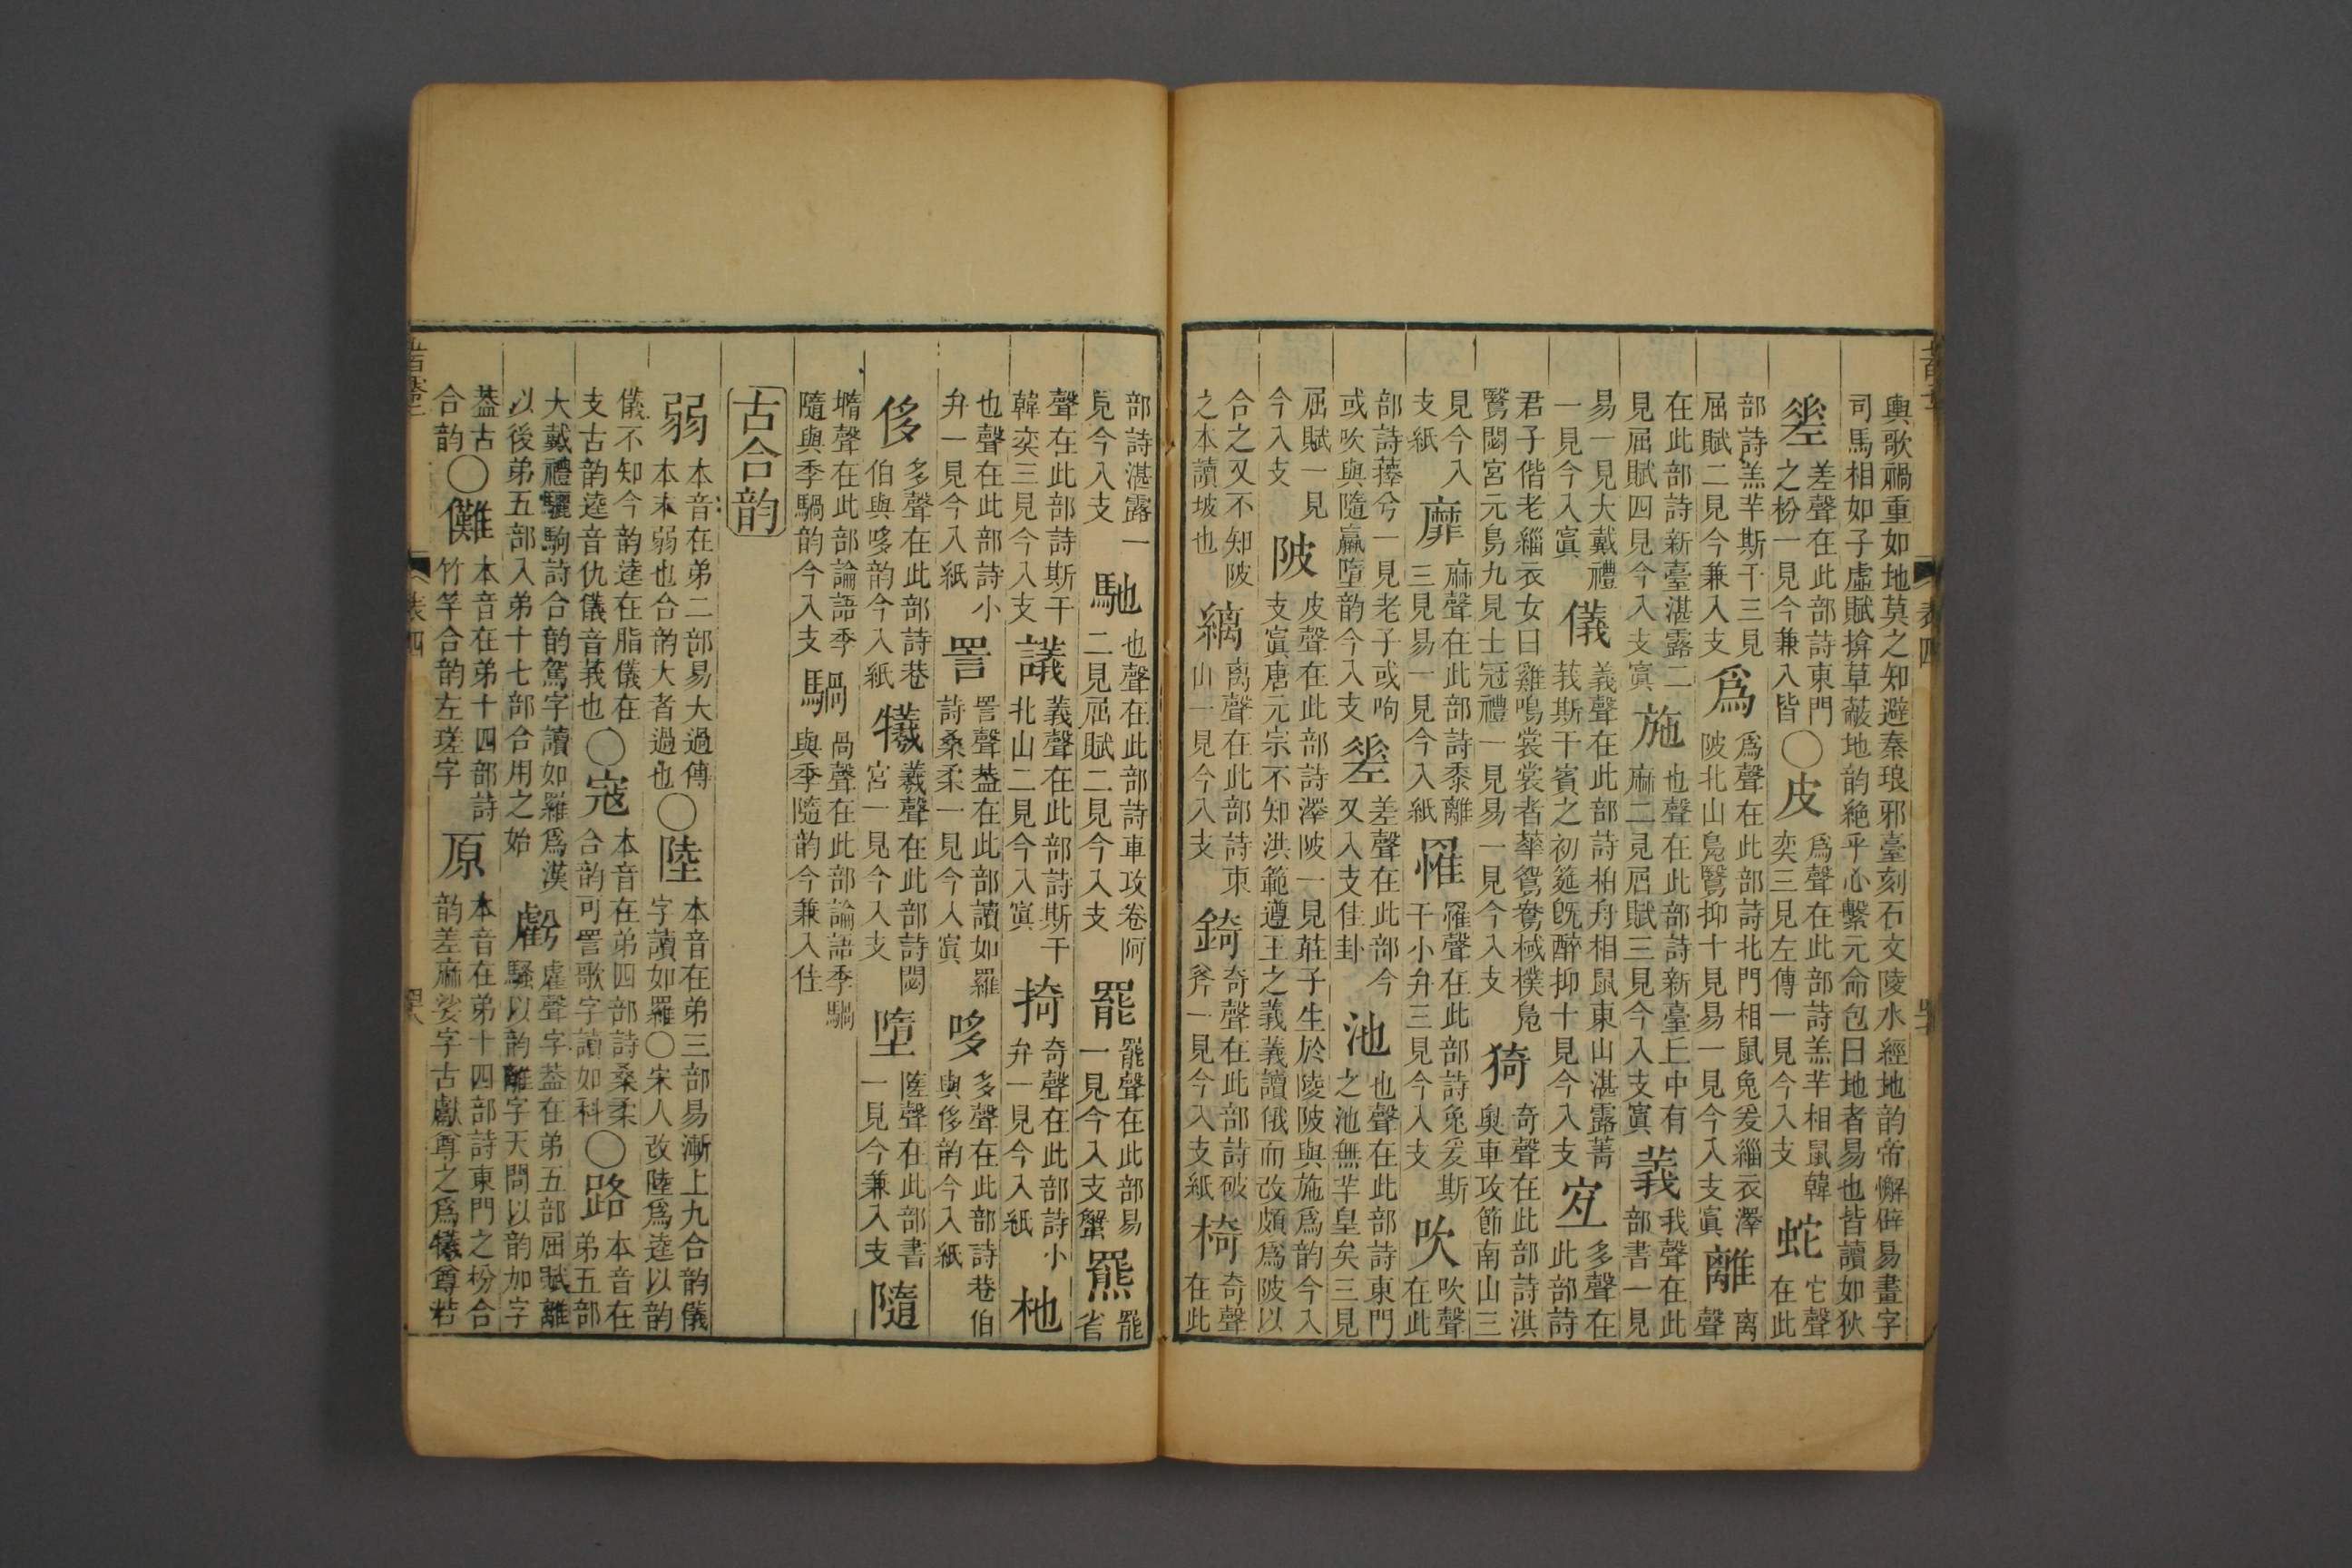 輿歌禍重如地莫之知避秦琅邪臺刻石文陵水經地韵帝懈僻易畫字
司馬相如子虛賦揜草蔽地韵絶乎心繫元命包曰地者易也皆讀如狄
𢀩差聲在此部詩東門之枌一見今兼入皆〇皮爲聲在此部詩羔羊相鼠韓奕三見左傳一見今入支蛇它聲在此
部詩羔羊斯干三見屈賦二見今兼入支爲爲聲在此部詩北門相鼠兔爰緇衣澤陂北山鳧鷖抑十見易一見今入支寘離离聲
在此部詩新臺湛露二見屈賦四見今入支寘施也聲在此部詩新臺丘中有麻二見屈賦三見今入支寘義我聲在此部書一見
易一見大戴禮一見今入寘儀義聲在此部詩柏舟相鼠東山湛露菁莪斯干賓之初筵旣醉抑十見今入支宐多聲在此部詩
君子偕老緇衣女曰雞鳴裳裳者華鴛鴦棫樸鳧鷖閟宮元鳥九見士冠禮一見易一見今入支猗奇聲在此部詩淇奧車攻節南山三
見今入支紙靡麻聲在此部詩黍離三見易一見今入紙罹罹聲在此部詩兔爰斯干小弁三見今入支吹吹聲在此
部詩蘀兮一見老子或呴或吹與隨羸墮韵今入支𢀩差聲在此部今又入支佳卦池也聲在此部詩東門之池無羊皇矣三見
屈賦一見今入支陂皮聲在此部詩澤陂一見莊子生於陵陂與施爲韵今入支寘唐元宗不知洪範遵王之義義讀俄而改頗爲陂以
合之又不知陂之本讀坡也縭离聲在此部詩東山一見今入支錡奇聲在此部詩破斧一見今入支紙椅奇聲在此
部詩湛露一見今入支馳也聲在此部詩車攻卷阿二見屈賦二見今入支罷罷聲在此部易一見今入支蟹羆罷省
聲在此部詩斯干韓奕三見今入支議義聲在此部詩斯干北山二見今入寘掎奇聲在此部詩小弁一見今入紙杝
也聲在此部詩小弁一見今入紙詈詈聲葢在此部讀如羅詩桑柔一見今入寘哆多聲在此部詩巷伯與侈韵今入紙
侈多聲在此部詩巷伯與哆韵今入紙犧義聲在此部詩閟宮一見今入支墮隓聲在此部書一見今兼入支隨
墮聲在此部論語季隨與季騧韵今入支騧咼聲在此部論語季騧與季隨韵今兼入佳
古合韵
弱本音在弟二部易大過傳本末弱也合韵大者過也〇陸本音在弟三部易漸上九合韵儀字讀如羅〇宋人改陸爲逵以韵
儀不知今韵逵在脂儀在支古韵逵音仇儀音莪也〇寇本音在弟四部詩桑柔合韵可詈歌字讀如科〇路本音在弟五部
大戴禮驪駒詩合韵駕字讀如羅爲漢以後弟五部入弟十七部合用之始虧虗聲字葢在弟五部屈賦離騷以韵離字天問以韵加字
葢古合韵〇儺本音在弟十四部詩竹竿合韵左瑳字原本音在弟十四部詩東門之枌合韵差麻娑字古獻尊之爲犧尊若